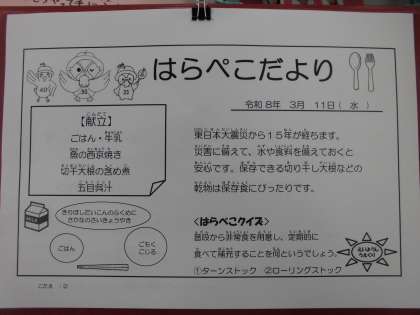 はらぺこだより
令和 8年 3月 11日( 水 )
【献立】
ごはん・牛乳
魚の西京焼き
切干大根の含め煮
五目呉汁
東日本大震災から１５年が経ちます。
災害に備えて、水や食料を備えておくと
安心です。保存できる切り干し大根などの
乾物は保存食にぴったりです。
きりぼしだいこんのふくめに
さかなのさいきょうやき
ごはん
ごもく
ごじる
<はらぺこクイズ>
普段から非常食を用意し、定期的に
食べて補充することを何というでしょう。
①ターンストック ②ローリングストック